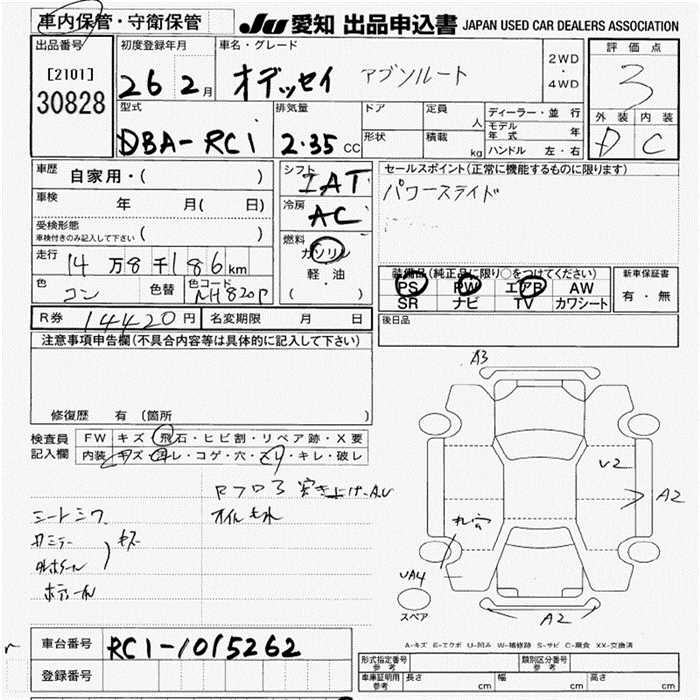 車内保管・守衛保管
JU 愛知 出品申込書 JAPAN USED CAR DEALERS ASSOCIATION
出品番号 初度登録年月 車名・グレード 2WD・4WD 評価点
[2101] 30828 26 2月 オデッセイ アブソルート 3
型式 排気量 ドア 定員 人 ディーラー・並行 外装 内装
DBA-RC1 2.35 CC 形状 積載 kg モデル年式 年 D C
ハンドル 左・右
車歴 自家用・( ) シフト IAT セールスポイント(正常に機能するものに限ります)
車検 年 月( 日) 冷房 AC パワースライド
受検形態
車検付きのみ記入して下さい ( )
燃料 ガソリン
軽・油
( )
走行 14万8千186km
装備品(純正品に限り○をつけてください) 新車保証書
PS PW エアB AW 有・無
SR ナビ TV カワシート
色 コン 色替 色コード NH820P
R券 14420円 名変期限 月 日 後日品
注意事項申告欄(不具合内容等は具体的に記入して下さい)
修復歴 有 (箇所 )
検査員記入欄 FW キズ・飛石・ヒビ割・リペア跡・X要
内装 キズ・汚レ・コゲ・穴・スレ・キレ・破レ
シートシワ
キズ
オイルもれ
A3
V2
A2
VA4
スペア
A2
A-キズ E-エクボ U-凹み W-補修跡 S-サビ C-腐食 XX-交換済
車台番号 RC1-1015262
登録番号
形式指定番号 参考 類別区分番号 参考
車庫証明用 参考 長さ cm 幅 cm 高さ cm